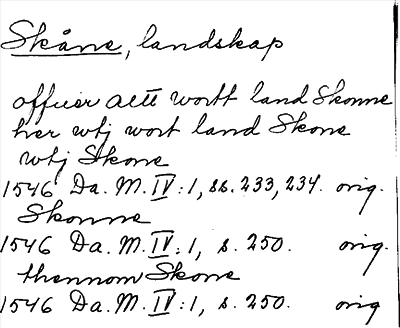 Skåne, landskap
offuer altt wortt land Skonne
her wtj wort land Skone
wtj Skone
1546 Da. M. IV:1, ss. 233, 234. orig.
Skonne
1546 Da. M. IV:1, s. 250. orig.
thennom Skone
1546 Da. M. IV:1, s. 250. orig